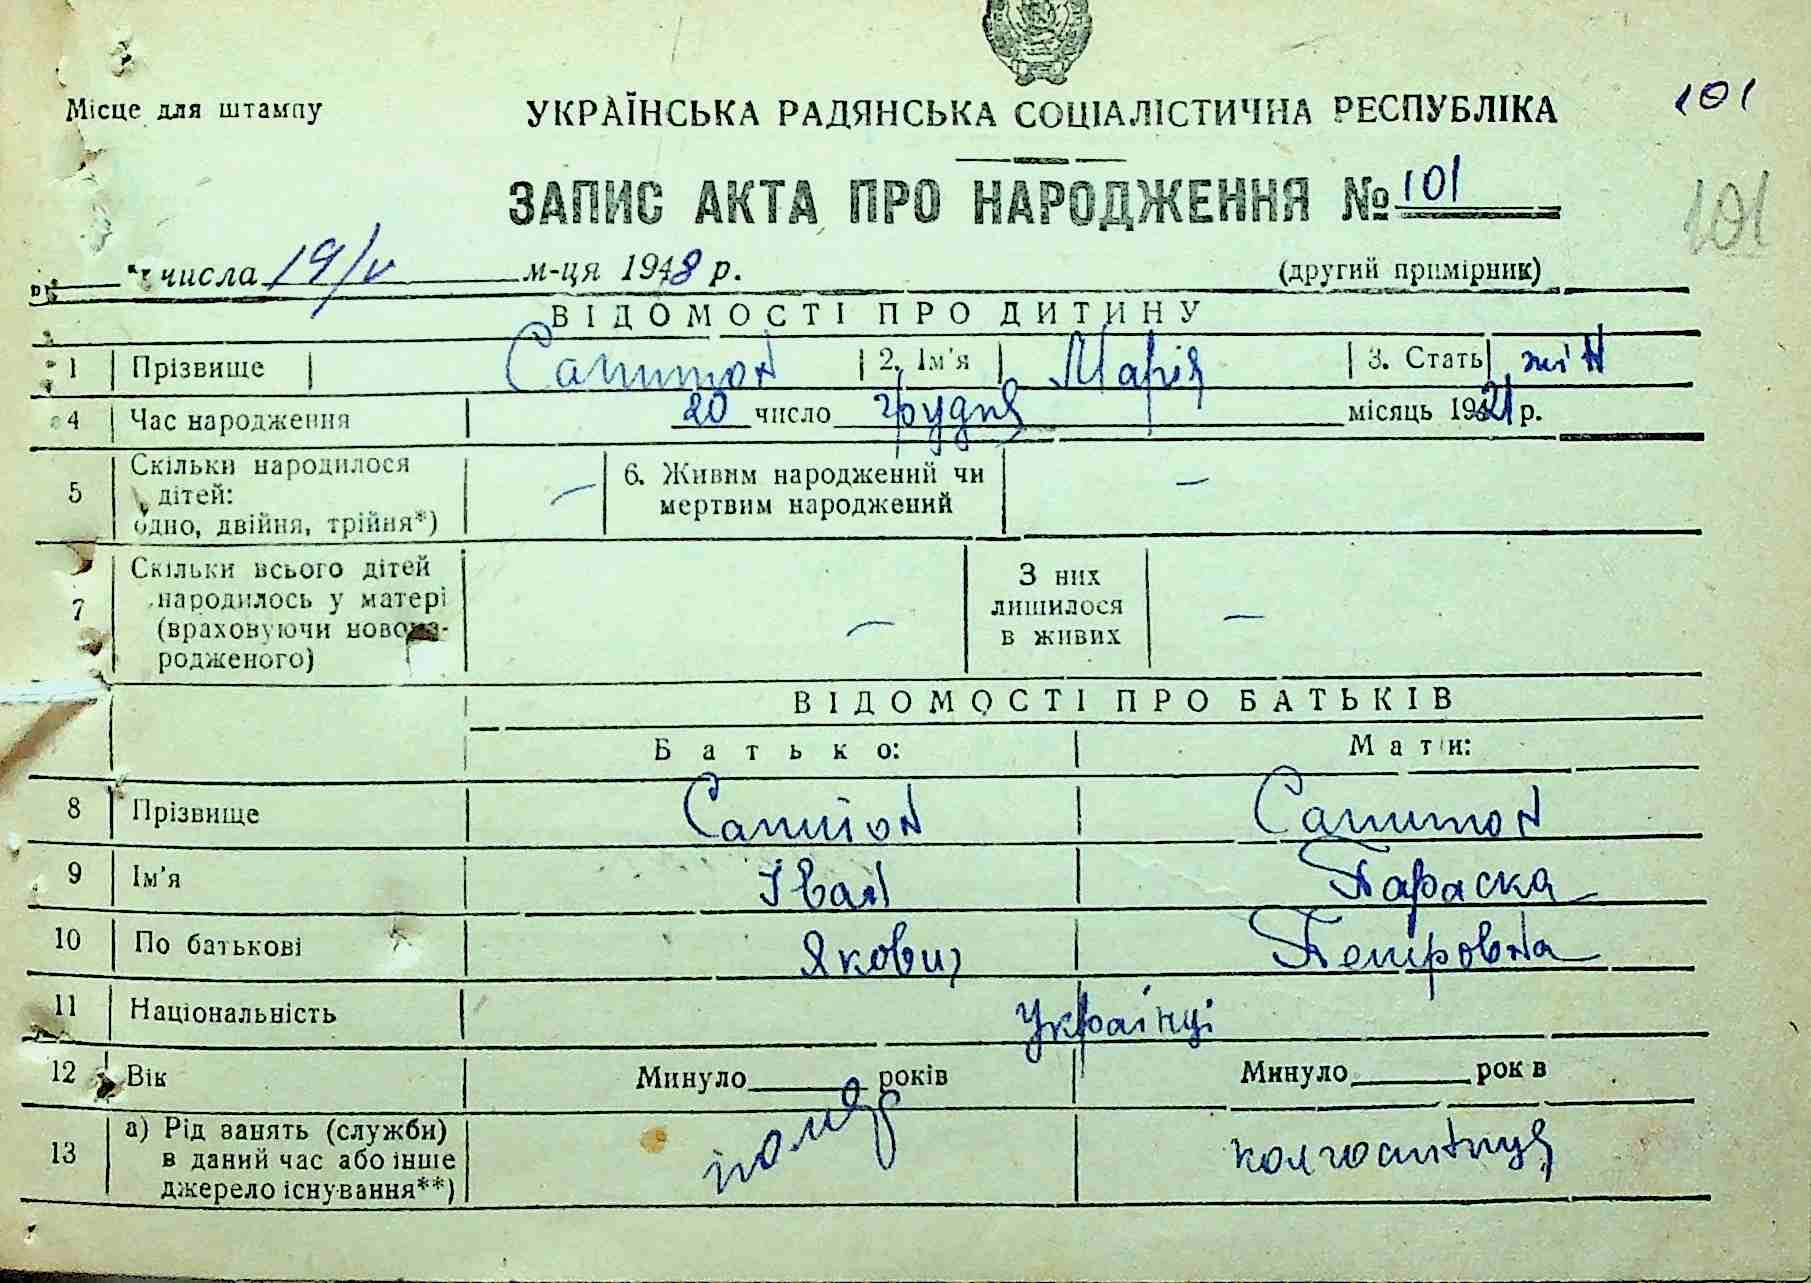 101
Місце для штампу
УКРАЇНСЬКА РАДЯНСЬКА СОЦІАЛІСТИЧНА РЕСПУБЛІКА
ЗАПИС АКТА ПРО НАРОДЖЕННЯ № 101
101
числа 19/V м-ця 1948 р.
(другий примірник)
ВІДОМОСТІ ПРО ДИТИНУ
1 Прізвище 2. Ім'я Марія 3. Стать жін
4 Час народження 20 число грудня місяць 1921 р.
5 Скільки народилося дітей: одно, двійня, трійня*) — 6. Живим народжений чи мертвим народжений —
7 Скільки всього дітей народилось у матері (враховуючи новонародженого) — З них лишилося в живих —
ВІДОМОСТІ ПРО БАТЬКІВ
Батько: Мати:
8 Прізвище
9 Ім'я Іван Параска
10 По батькові Якович Петровна
11 Національність українці
12 Вік Минуло років Минуло рок в
13 а) Рід занять (служби) в даний час або інше джерело існування**) помер колгоспниця